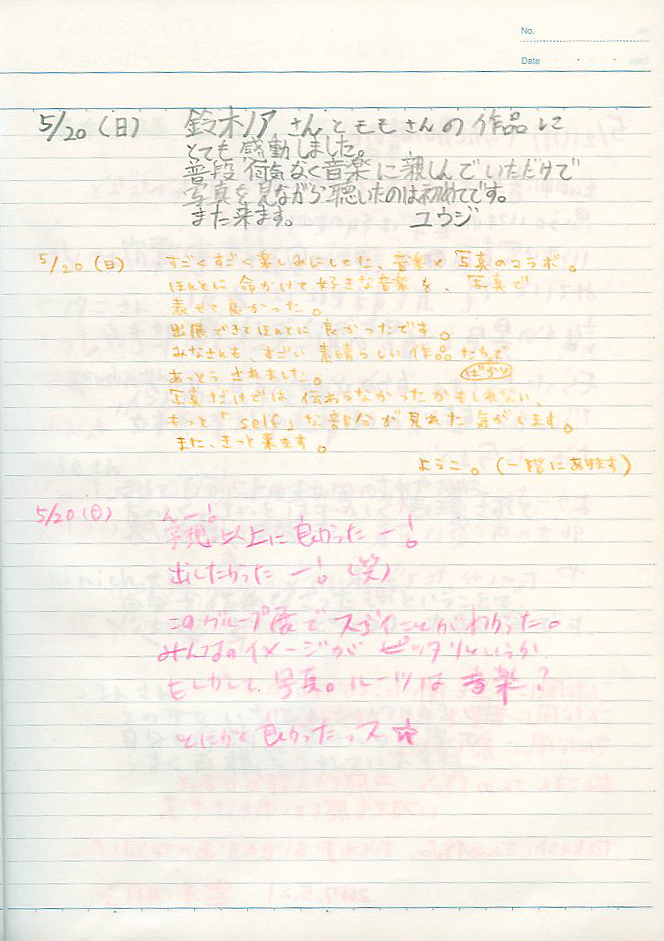 No.
Date
5/20(日) 鈴木ノアさんとモモさんの作品に
とても感動しました。
普段何気なく音楽に親しんでいただけで
写真を見ながら聴いたのは初めてです。
また来ます。 ユウジ
5/20(日) すごくすごく楽しみにしてた、音楽×写真のコラボ。
ほんとに命かけて好きな音楽を、写真で
表せて良かった。
出展できてほんとに良かったです。
みなさんも、すごい素晴らしい作品たちで
ばかり
あっとうされました。
写真だけでは伝わらなかったかもしれない、
もっと「self」な部分が見れた気がします。
また、きっと来ます。
ようこ。(一階にあります)
5/20(日) んー!
予想以上に良かったー!
出したかったー!(笑)
このグループ展でスゴイことがわかった。
みんなのイメージがピッタリというか
もしかして、写真。ルーツは音楽?
とにかく良かったっス☆